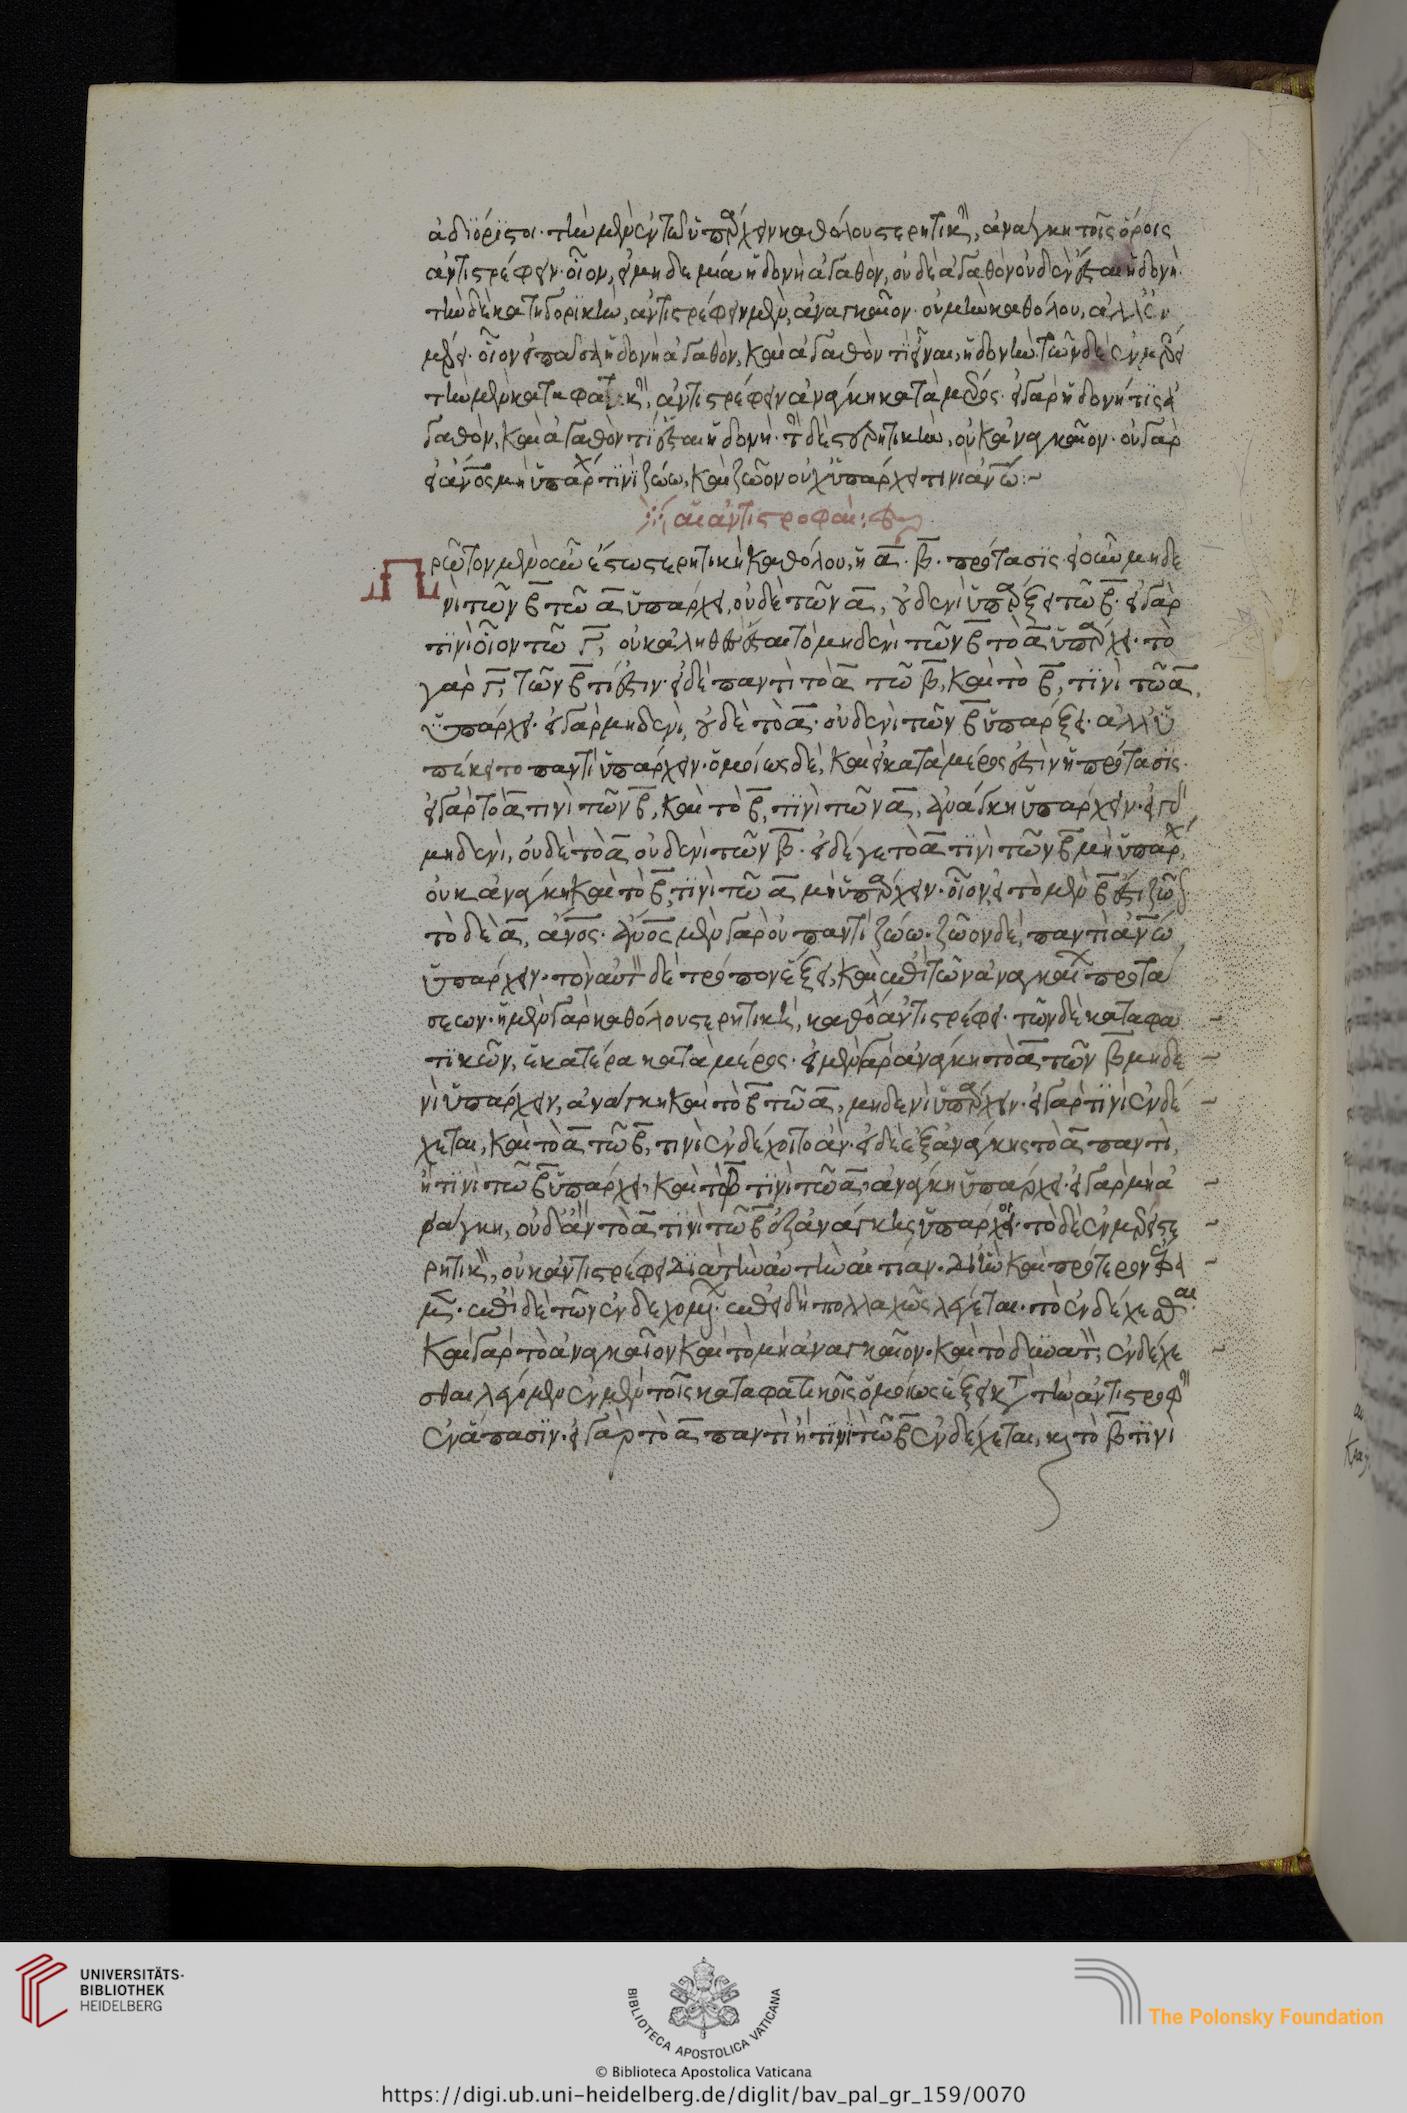 ἀδιόριστοι· τὴν μὲν ἐν τῶ ὑπάρχειν καθόλου στερητικὴν, ἀνάγκη τοῖς ὅροις
ἀντιστρέφειν· οἷον, εἰ μηδεμία ἡδονὴ ἀγαθὸν, οὐδὲ ἀγαθὸν οὐδὲν ἔσται ἡδονὴ·
τὴν δὲ κατηγορικὴν, ἀντιστρέφειν μὲν, ἀναγκαῖον· οὐ μὴν καθόλου, ἀλλ' ἐν
μέρει· οἷον εἰ πᾶσα ἡδονὴ ἀγαθὸν, καὶ ἀγαθὸν τὶ εἶναι, ἡδονὴν· τῶν δὲ ἐν μέρει
τὴν μὲν καταφατικὴν, ἀντιστρέφειν ἀνάγκη κατὰ μέρος· εἰ γὰρ ἡδονή τις ἀ
γαθὸν, καὶ ἀγαθὸν τὶ ἔσται ἡδονὴ· τὴν δὲ στερητικὴν, οὐκ ἀναγκαῖον· οὐ γὰρ
εἰ ἄνος μὴ ὑπάρχει τινὶ ζώω, καὶ ζῶον οὐχ ὑπάρχει τινὶ ἀνω :~
αἱ ἀντιστροφαὶ :
Πρῶτον μὲν οὖν ἔστω στερητικὴ καθόλου, ἡ α. β. πρότασις· εἰ οὖν μηδε
νὶ τῶν β τῶ α ὑπάρχει, οὐδὲ τῶν α, οὐδενὶ ὑπάρξει τῶ β· εἰ γάρ
τινὶ οἷον τῶ Γ, οὐκ ἀληθὲς ἔσται τὸ μηδενὶ τῶν β τὸ α ὑπάρχει· τὸ
γὰρ Γ, τῶν β τί ἐστιν· εἰ δὲ παντὶ τὸ α τῶ β, καὶ τὸ β, τινὶ τῶ α,
ὑπάρχει· εἰ γὰρ μηδενὶ, οὐδὲ τὸ α· οὐδενὶ τῶν β ὑπάρξει· ἀλλ' ὑ
πέκειτο παντὶ ὑπάρχειν· ὁμοίως δὲ, καὶ εἰ κατὰ μέρος ἐστὶν ἡ πρότασις·
εἰ γὰρ τὸ α τινὶ τῶν β, καὶ τὸ β, τινὶ τῶν α, ἀνάγκη ὑπάρχειν· εἰ γὰρ
μηδενὶ, οὐδὲ τὸ α οὐδενὶ τῶν β· εἰ δέ γε τὸ α τινὶ τῶν β μὴ ὑπάρχει,
οὐκ ἀνάγκη καὶ τὸ β, τινὶ τῶ α μὴ ὑπάρχειν· οἷον, εἰ τὸ μὲν β ἐστι ζῶον
τὸ δὲ α, ἄνος· ἄνος μὲν γὰρ οὐ παντὶ ζώω· ζῶον δὲ, παντὶ ἀνω
ὑπάρχειν· τὸν αὐτὸν δὲ τρόπον ἕξει, καὶ ἐπὶ τῶν ἀναγκαίων προτά
σεων· ἡ μὲν γὰρ καθόλου στερητικὴ, καθόλου ἀντιστρέφει· τῶν δὲ καταφα
τικῶν, ἑκατέρα κατὰ μέρος· εἰ μὲν γὰρ ἀνάγκη τὸ α τῶν β μηδε
νὶ ὑπάρχειν, ἀνάγκη καὶ τὸ β τῶ α, μηδενὶ ὑπάρχειν· εἰ γάρ τινὶ ἐνδέ
χεται, καὶ τὸ α τῶ β, τινὶ ἐνδέχοιτο ἀν· εἰ δὲ ἐξ ἀνάγκης τὸ α παντὶ,
ἢ τινὶ τῶ β ὑπάρχει, καὶ τὸ β τινὶ τῶ α, ἀνάγκη ὑπάρχει· εἰ γὰρ μὴ ἀ
νάγκη, οὐδ' ἀν τὸ α τινὶ τῶ β ἐξ ἀνάγκης ὑπάρχοι· τὸ δὲ ἐν μέρει στε
ρητικὸν, οὐκ ἀντιστρέφει διὰ τὴν αὐτὴν αἰτίαν· δι' ἣν καὶ πρότερον ἔφα
μεν· ἐπὶ δὲ τῶν ἐνδεχομένων· ἐπειδὴ πολλαχῶς λέγεται· τὸ ἐνδέχεσθαι·
καὶ γὰρ τὸ ἀναγκαῖον καὶ τὸ μὴ ἀναγκαῖον· καὶ τὸ δυνατὸν, ἐνδέχε
σθαι λέγομεν ἐν μὲν τοῖς καταφατικοῖς ὁμοίως ἕξει κατὰ τὴν ἀντιστροφὴν
ἐν ἅπασιν· εἰ γὰρ τὸ α παντὶ ἢ τινὶ τῶ β ἐνδέχεται, καὶ τὸ β τινὶ
UNIVERSITÄTS-
BIBLIOTHEK
HEIDELBERG
BIBLIOTECA APOSTOLICA VATICANA
The Polonsky Foundation
© Biblioteca Apostolica Vaticana
https://digi.ub.uni-heidelberg.de/diglit/bav_pal_gr_159/0070